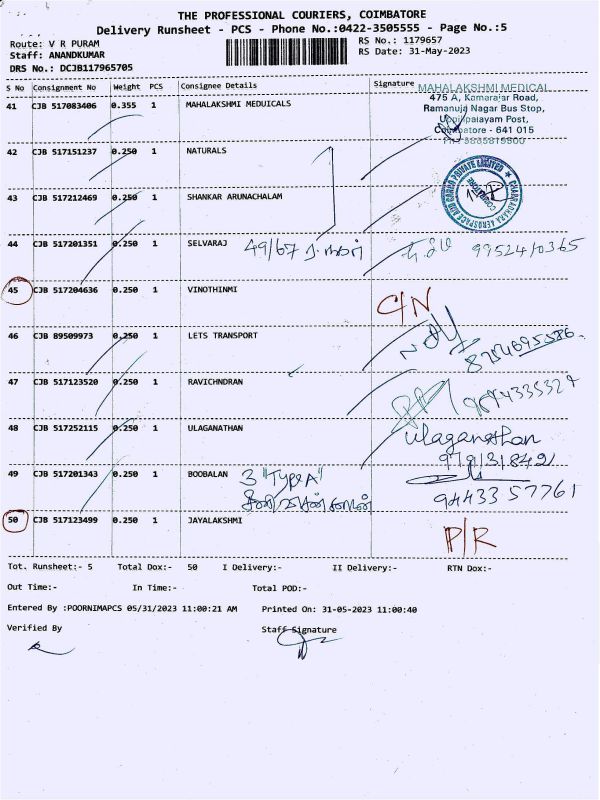 THE PROFESSIONAL COURIERS, COIMBATORE
Delivery Runsheet - PCS - Phone No.:0422-3505555 - Page No.:5
Route: V R PURAM
RS No.: 1179657
Staff: ANANDKUMAR
RS Date: 31-May-2023
DRS No.: DCJB117965705
S No Consignment No Weight PCS Consignee Details Signature
41 CJB 517083406 0.355 1 MAHALAKSHMI MEDUICALS
MAHALAKSHMI MEDICAL
475 A, Kamarajar Road,
Ramanuja Nagar Bus Stop,
Uppilipalayam Post,
Coimbatore - 641 015
42 CJB 517151237 0.250 1 NATURALS
43 CJB 517212469 0.250 1 SHANKAR ARUNACHALAM
44 CJB 517201351 0.250 1 SELVARAJ 49/67 9952410365
45 CJB 517204636 0.250 1 VINOTHINMI C/N
46 CJB 89509973 0.250 1 LETS TRANSPORT 8754695586
47 CJB 517123520 0.250 1 RAVICHNDRAN
48 CJB 517252115 0.250 1 ULAGANATHAN ulaganathan
9791318421
49 CJB 517201343 0.250 1 BOOBALAN 3 "Type A"
94433 57761
50 CJB 517123499 0.250 1 JAYALAKSHMI P/R
Tot. Runsheet:- 5 Total Dox:- 50 I Delivery:- II Delivery:- RTN Dox:-
Out Time:- In Time:- Total POD:-
Entered By :POORNIMAPCS 05/31/2023 11:00:21 AM Printed On: 31-05-2023 11:00:40
Verified By Staff Signature